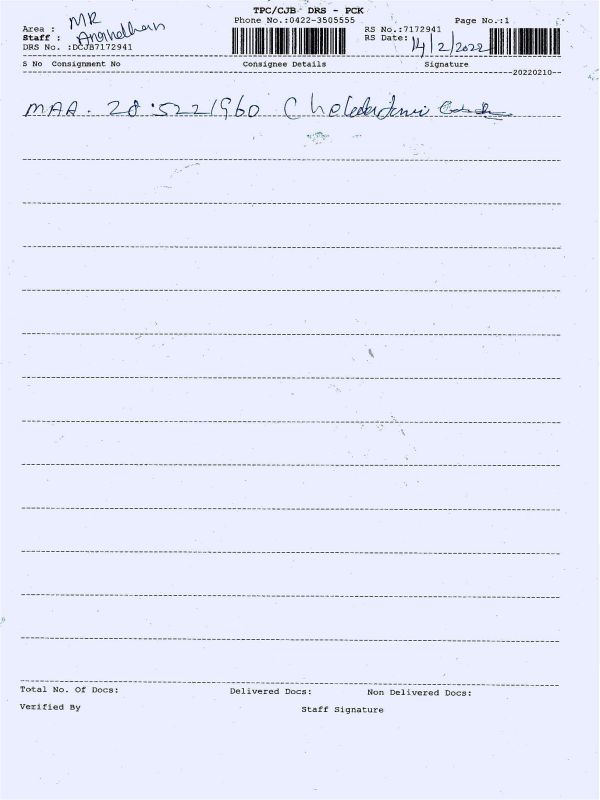 TPC/CJB DRS - PCK
Phone No.:0422-3505555 Page No.:1
Area : MR
Staff : Ananadhan
RS No.:7172941
RS Date: 14/2/2022
DRS No. :DCJB7172941
S No Consignment No Consignee Details Signature
20220210
MAA. 28.5221960
Total No. Of Docs: Delivered Docs: Non Delivered Docs:
Verified By Staff Signature